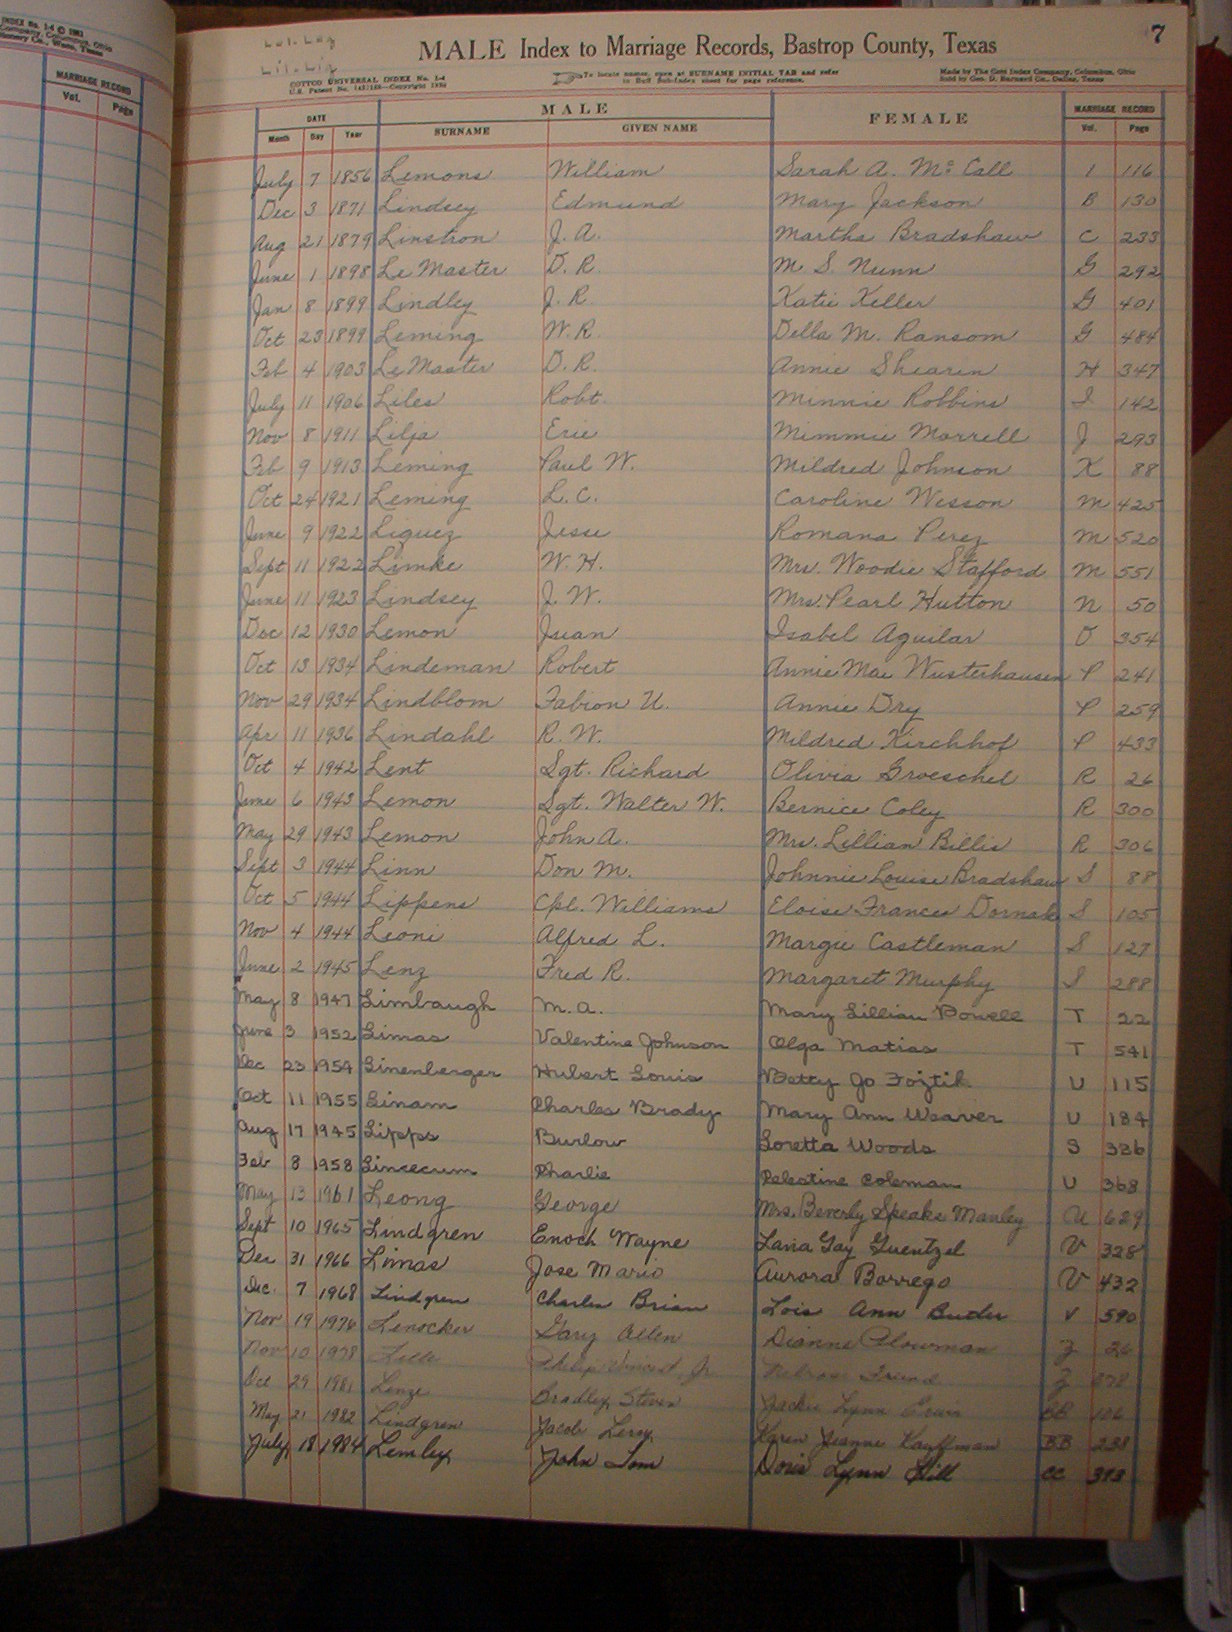 INDEX No. 1-4 © 1963
Company, Columbus, Ohio
MARRIAGE RECORD
Vol. Page
7
MALE Index to Marriage Records, Bastrop County, Texas
COTTCO UNIVERSAL INDEX No. 1-4
To locate names, open at SURNAME INITIAL TAB and refer
to Buff Sub-Index sheet for page reference.
Made by The Cott Index Company, Columbus, Ohio
Sold by Geo. D. Barnard Co., Dallas, Texas
DATE MALE FEMALE MARRIAGE RECORD
Month Day Year SURNAME GIVEN NAME Vol. Page
July 7 1856 Lemons William Sarah A. McCall 1 116
Dec 3 1871 Lindsey Edmund Mary Jackson B 130
Aug 21 1879 Linstron J. A. Martha Bradshaw C 233
June 1 1898 LeMaster D. R. M. S. Nunn G 292
Jan 8 1899 Lindley J. R. Katie Keller G 401
Oct 23 1899 Leming W. R. Della M. Ransom G 484
Feb 4 1903 LeMaster D. R. Annie Shearin H 347
July 11 1906 Liles Robt. Minnie Robbins I 142
Nov 8 1911 Lilja Eric Mimmie Morrell J 293
Feb 9 1913 Leming Paul W. Mildred Johnson K 88
Oct 24 1921 Leming L. C. Caroline Wesson M 425
June 9 1922 Liguez Jesse Romana Perez M 520
Sept 11 1922 Limke W. H. Mrs. Woodie Stafford M 551
June 11 1923 Lindsey J. W. Mrs. Pearl Hutton N 50
Dec 12 1930 Lemon Juan Isabel Aguilar O 354
Oct 13 1934 Lindeman Robert Annie Mae Wusterhausen P 241
Nov 29 1934 Lindblom Fabion U. Annie Dry P 259
Apr 11 1936 Lindahl R. W. Mildred Kirchhof P 433
Oct 4 1942 Lent Sgt. Richard Olivia Groeschel R 26
June 6 1943 Lemon Sgt. Walter W. Bernice Coley R 300
May 29 1943 Lemon John A. Mrs. Lillian Billis R 306
Sept 3 1944 Linn Don M. Johnnie Louise Bradshaw S 88
Oct 5 1944 Lippens Cpl. Williams Eloise Frances Dornak S 105
Nov 4 1944 Leoni Alfred L. Margie Castleman S 127
June 2 1945 Lenz Fred R. Margaret Murphy S 288
May 8 1947 Limbaugh M. A. Mary Lillian Powell T 22
June 3 1952 Limas Valentine Johnson Olga Matias T 541
Dec 23 1954 Linenberger Hubert Louis Betty Jo Fojtik U 115
Oct 11 1955 Linam Charles Brady Mary Ann Weaver U 184
Aug 17 1945 Lipps Burlow Loretta Woods S 336
Feb 8 1958 Lincecum Charlie Celestine Coleman U 368
May 13 1961 Leong George Mrs. Beverly Speaks Manley U 629
Sept 10 1965 Lindgren Enoch Wayne Lana Gay Guentzel V 328
Dec 31 1966 Limas Jose Mario Aurora Borrego V 432
Dec. 7 1968 Lindgren Charles Brian Lois Ann Butler V 590
Nov 19 1976 Lenocker Gary Allen Dianne Plowman Z 26
Nov 10 1978 Philip Vincent, Jr. Z
Oct 29 1981 Lenze Bradley Steven Jackie Lynn Erwin BB 106
May 21 1982 Lindgren Jacob Leroy Karen Jeanne Kauffman BB 238
July 18 1984 Lemley John Tom Doris Lynn Hill CC 393